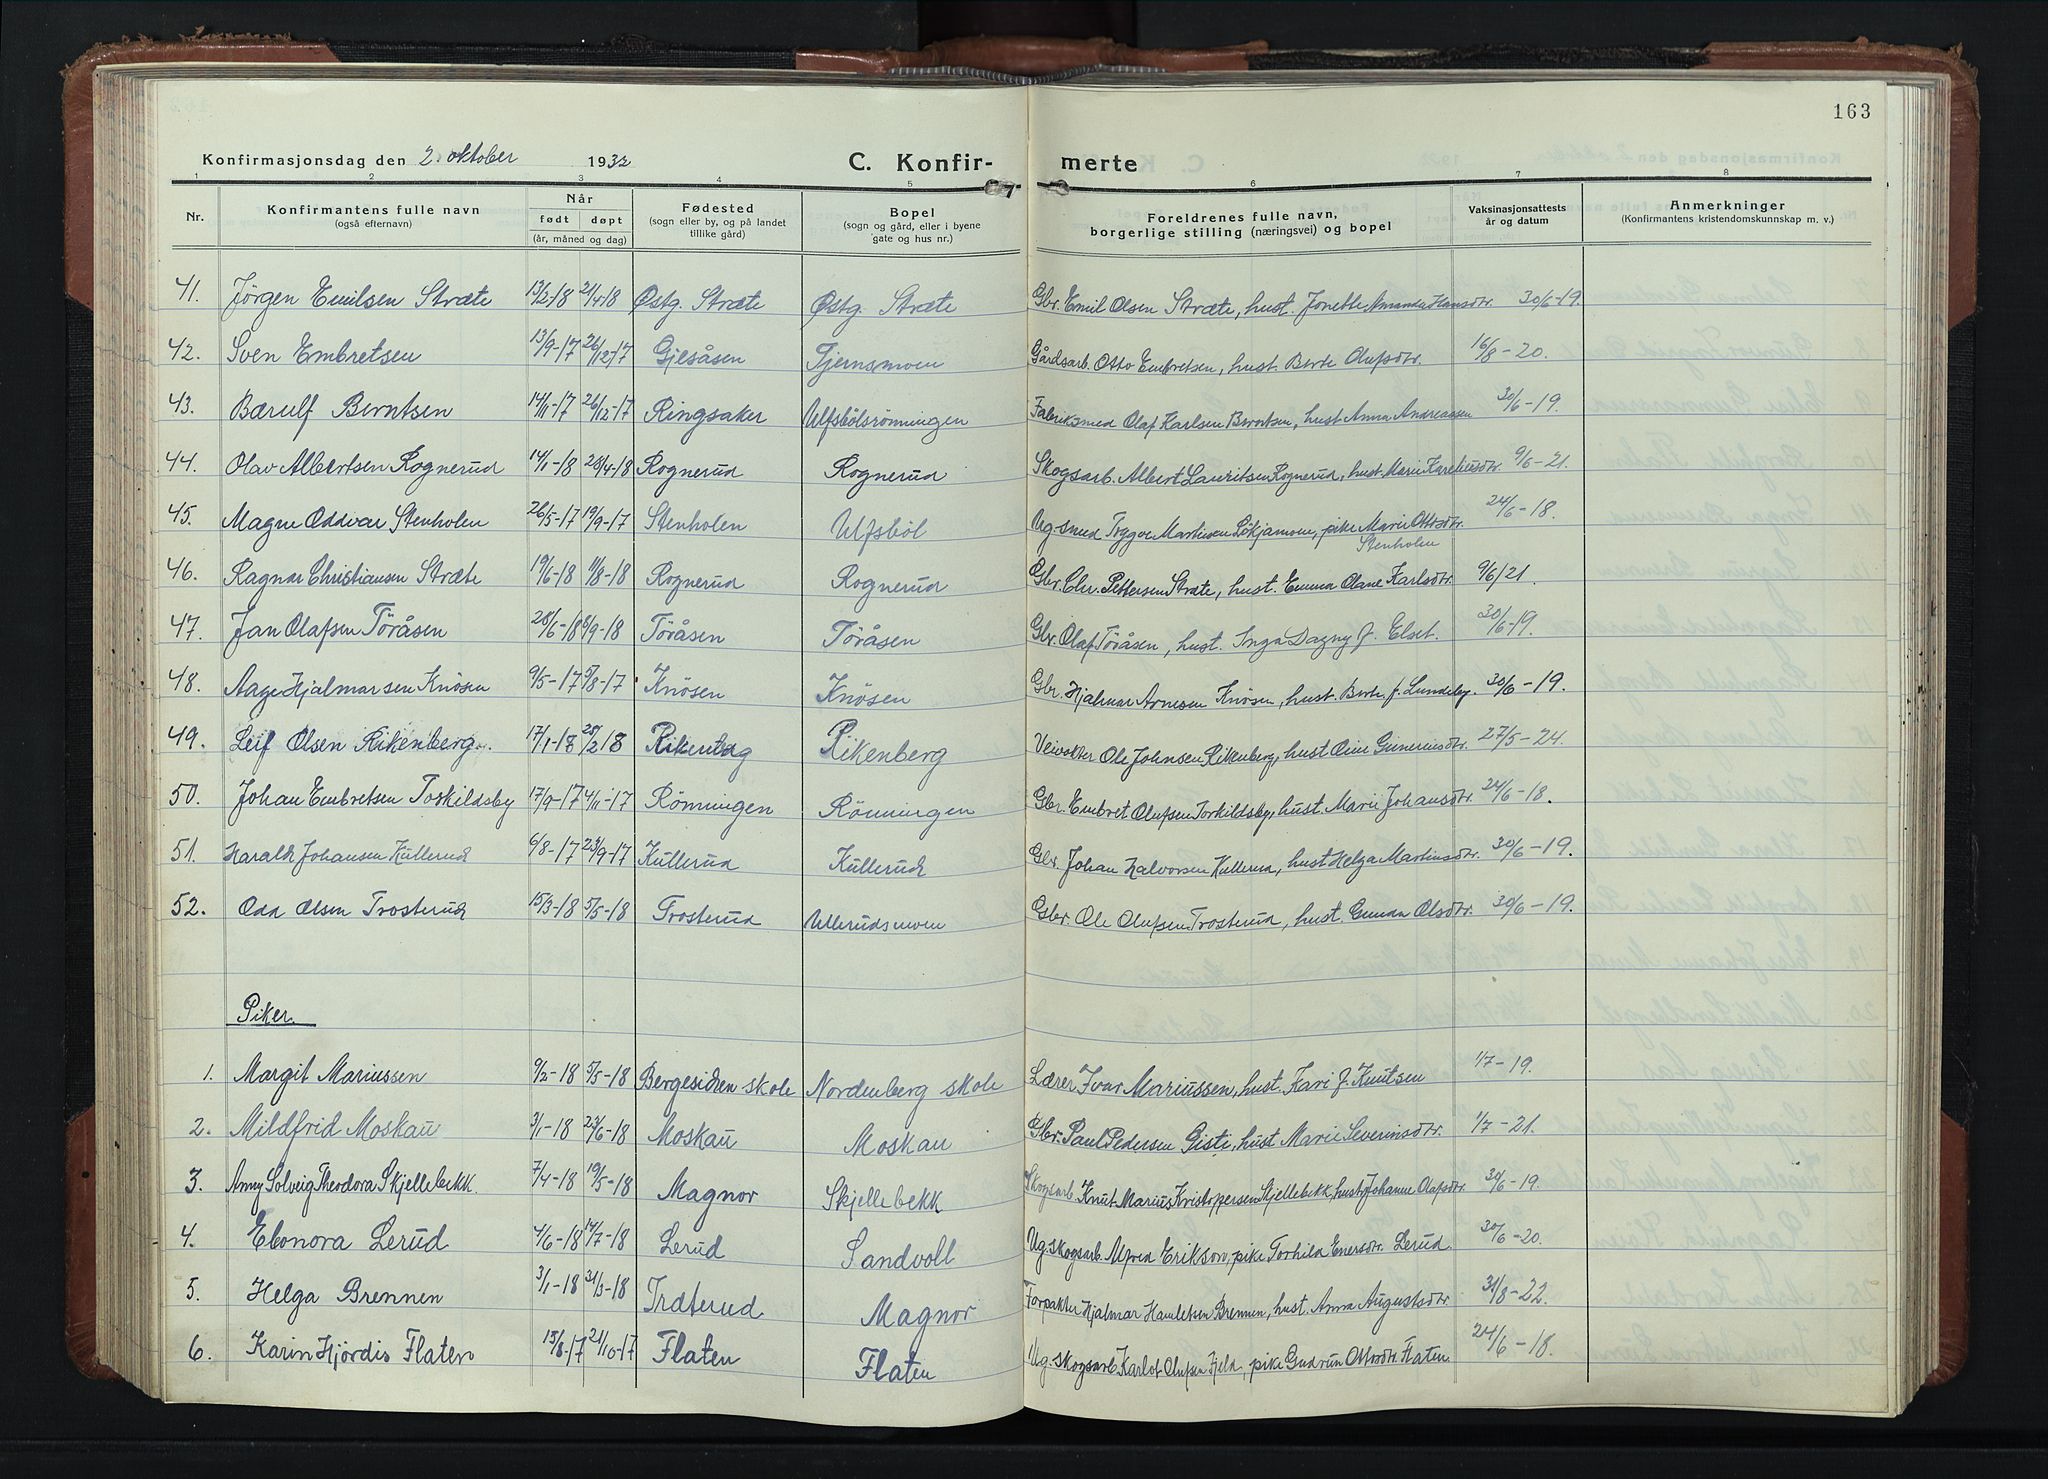 163
Konfirmasjonsdag den 2. oktober 1932 C. Konfir- merte
1 2 3 4 5 6 7 8
Nr. Konfirmantens fulle navn (også efternavn) Når født døpt (år, måned og dag) Fødested (sogn eller by, og på landet tillike gård) Bopel (sogn og gård, eller i byene gate og hus nr.) Foreldrenes fulle navn, borgerlige stilling (næringsvei) og bopel Vaksinasjonsattests år og datum Anmerkninger (Konfirmantens kristendomskunnskap m. v.)
41. Jörgen Emilsen Stræte 13/2-18 21/4-18 Østg. Stræte Østg. Stræte Gbr. Emil Olsen Stræte, hust. Jonette Amanda Hansdtr. 30/6-19.
42. Sven Embretsen 13/9-17 26/12-17 Gjesåsen Tjernsmoen Gårdsarb. Otto Embretsen, hust. Berte Olufsdtr. 16/8-20.
43. Bærulf Berntsen 14/11-17 26/12-17 Ringsaker Ulfsbölsrönningen Fabriksmed Olaf Karlsen Berntsen, hust. Anna Andreassen 30/6-19.
44. Olav Albertsen Rognerud 14/1-18 28/4-18 Rognerud Rognerud Skogsarb. Albert Lauritsen Rognerud, hust. Marie Kareliusdtr. 9/6-21.
45. Magne Oddvar Stenholen 26/5-17 19/9-17 Stenholen Ulfsböl Ug. smed Trygve Martinsen Lökjamoen, pike Marie Ottosdtr. Stenholen 24/6-18.
46. Ragnar Christiansen Stræte 19/6-18 11/8-18 Rognerud Rognerud Gbr. Chr. Pettersen Stræte, hust. Emma Olane Karlsdtr. 9/6/21.
47. Jan Olafsen Töråsen 28/6-18 8/9-18 Töråsen Töråsen Gbr. Olaf Töråsen, hust. Inga Dagny f. Elset. 30/6-19.
48. Aage Hjalmarsen Knösen 9/5-17 5/8-17 Knösen Knösen Gbr. Hjalmar Arnesen Knösen, hust. Berte f. Lundeby. 30/6-19.
49. Leif Olsen Rikenberg. 17/1-18 25/2 18 Rikenberg Rikenberg Veivokter Ole Johnsen Rikenberg, hust. Oline Gunerius dtr. 27/5-24.
50. Johan Embretsen Torkildsby 17/9-17 4/11-17 Rönningen Rönningen Gbr. Embret Olufsen Torkildsby, hust. Marie Johansdtr. 24/6-18.
51. Harald Johansen Kullerud 6/8-17 23/9-17 Kullerud Kullerud Gbr. Johan Halvorsen Kullerud, hust. Helga Martinsdtr. 30/6-19.
52. Odd Olsen Trosterud 15/3-18 5/5-18 Trosterud Ullerudsmoen Gbr. Ole Olufsen Trosterud, hust. Gunda Olsdtr. 30/6-19.
Piker.
1. Margit Mariussen 9/2-18 5/5-18 Bergesiden skole Nordenberg skole Lærer Ivar Mariussen, hust. Kari f. Knutsen 1/7-19.
2. Mildfrid Moskau 3/1-18 23/6-18 Moskau Moskau Gbr. Paul Pedersen Gisti, hust. Marie Severinsdtr. 1/7-21.
3. Anny Solveig Theodora Skjellebekk. 7/4-18 19/5-18 Magnor Skjellebekk Skogsarb. Knut Marius Kristoffersen Skjellebekk, hust. Johanne Olafsdtr. 30/6-19.
4. Elonora Lerud 4/6-18 14/7-18 Lerud Sandvoll Ug. skogsarb. Alfred Erikson, pike Torhild Enersdtr. Lerud. 30/6-20.
5. Helga Brennen 3/1-18 31/3-18 Træterud Magnor Forpakter Hjalmar Hamletsen Brennen, hust. Anna Augustsdtr. 31/8-22.
6. Karin Hjördis Flaten 15/8-17 21/10-17 Flaten Flaten Ug. skogsarb. Karlot Olufsen Hjeld, pike Gudrun Ottosdtr. Flaten. 24/6-18.